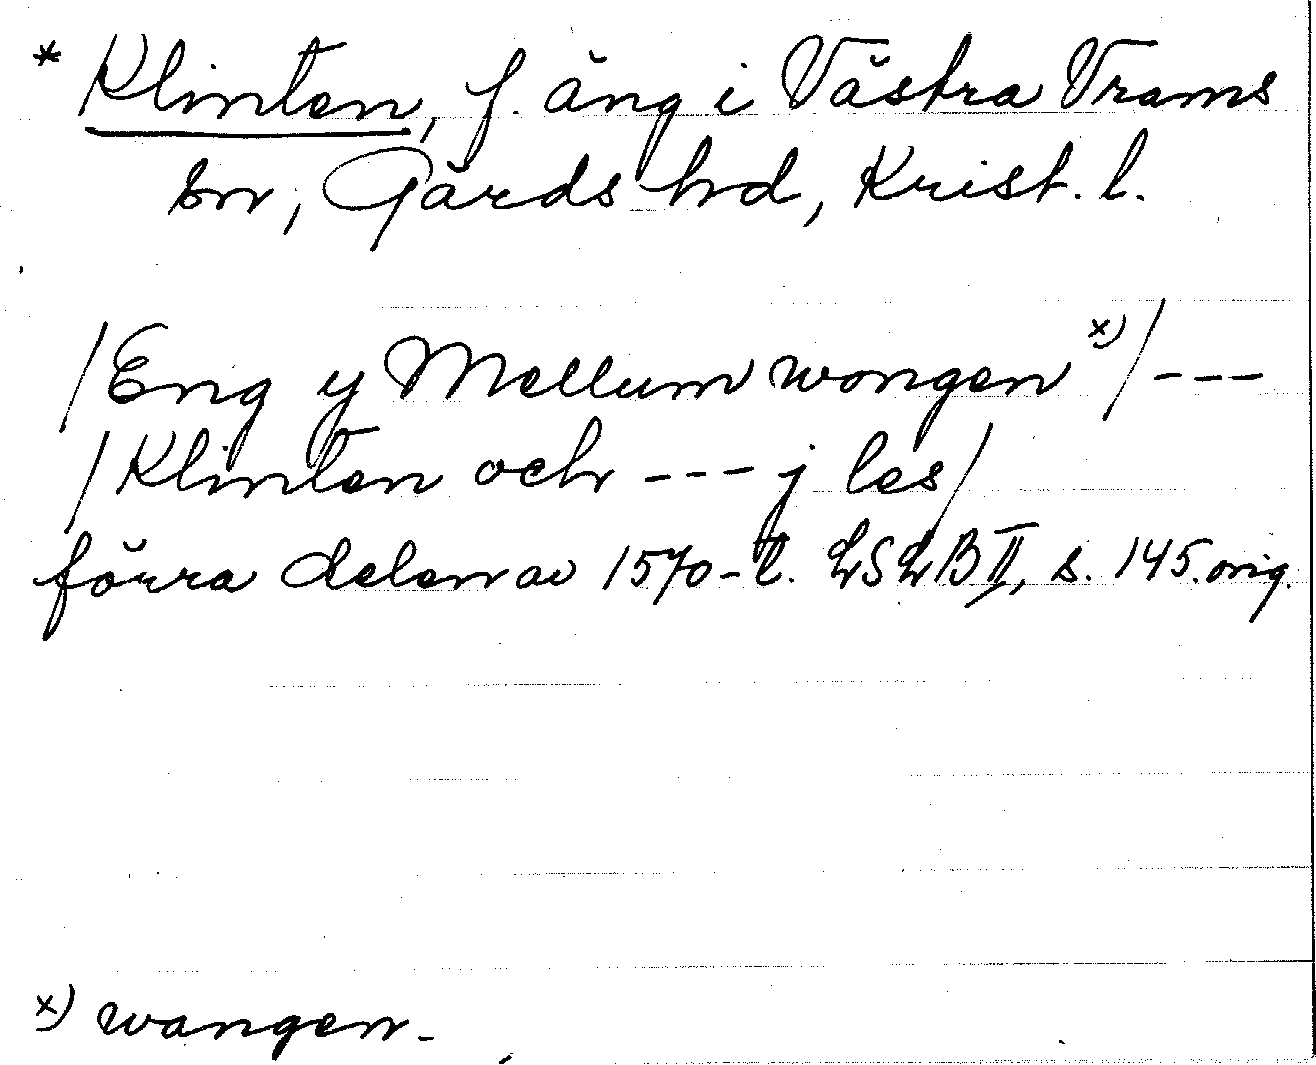 * Klinten, f. äng i Västra Vrams
sn, Gärds hd, Krist. l.
/Eng y Mellum wongen x)/ ---
/Klinten och --- j les/
förra delen av 1570-t. LSLB II, s. 145. orig.
x) wangen -